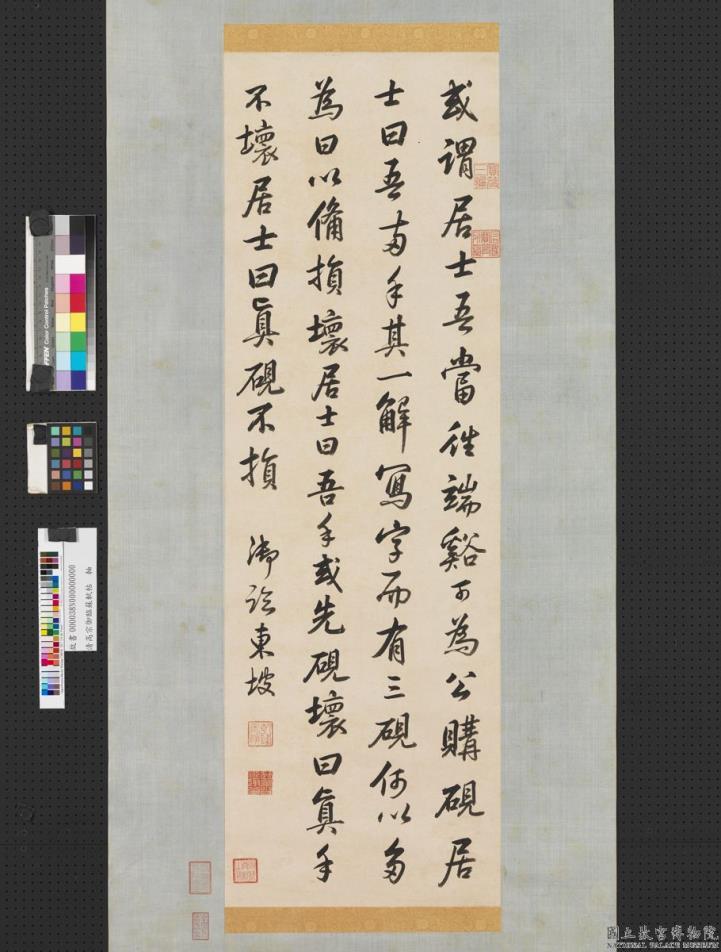 或謂居士吾當往端谿可為公購硯居
士曰吾兩手其一解寫字而有三硯何以多
為曰以備損壞居士曰吾手或先硯壞曰真手
不壞居士曰真硯不損 御臨東坡
Color Control Patches
清高宗御臨蘇軾帖 軸
國立故宮博物院
NATIONAL PALACE MUSEUM